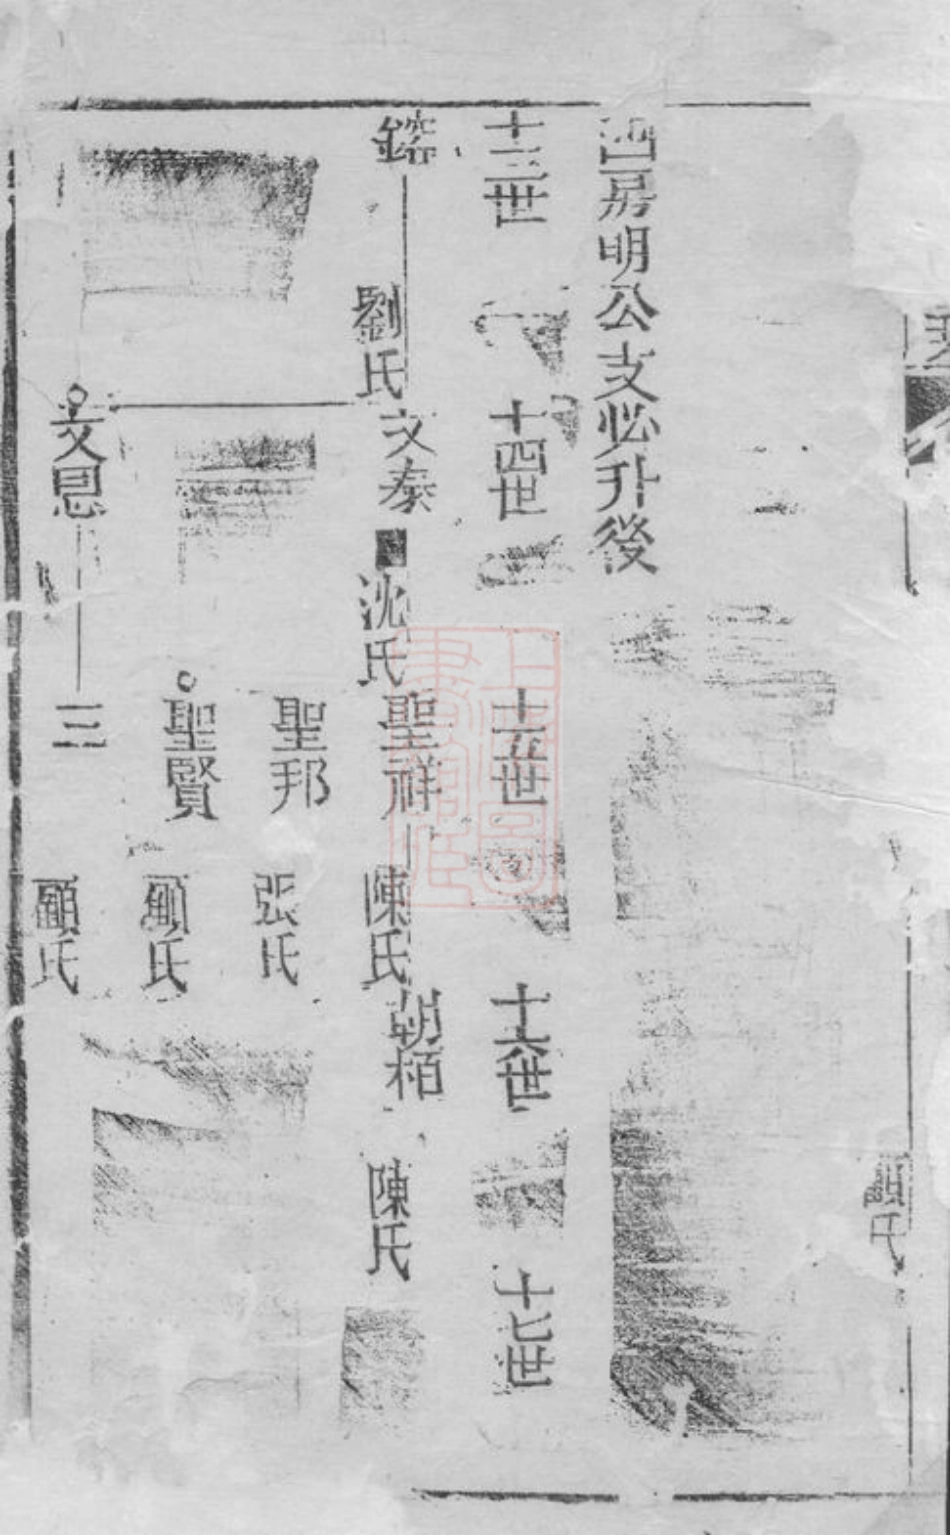 四房明公支必升後
十三世
十四世
十五世
十六世
十七世
劉氏
文泰
沈氏
聖祥
陳氏
朝栢
陳氏
聖邦
張氏
聖賢
顧氏
文恩
三
顧氏
顧氏